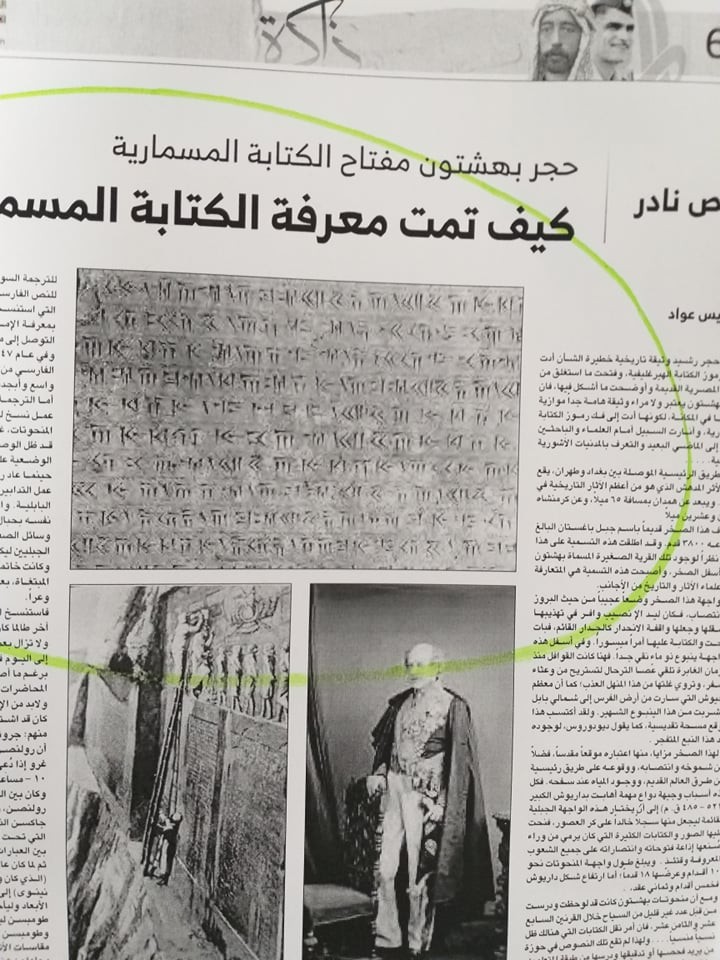 ذاكرة
6
ص نادر
حجر بهشتون مفتاح الكتابة المسمارية
كيف تمت معرفة الكتابة المسم
يس عواد
حجر رشيد وثيقة تاريخية خطيرة الشأن أدت
رموز الكتابة الهيرغليفية، وفتحت ما استغلق من
المصرية القديمة وأوضحت ما أشكل فيها، فان
بهشتون يعتبر ولا مراء وثيقة هامة جداً موازية
ا في المكانة، لكونها أدت إلى فك رموز الكتابة
رية، وأنارت السبيل أمام العلماء والباحثين
إلى الماضي البعيد والتعرف بالمدنيات الأشورية
طريق الرئيسية الموصلة بين بغداد وطهران، يقع
لأثر المدهش الذي هو من أعظم الآثار التاريخية في
ويبعد عن همدان بمسافة ٦٥ ميلاً، وعن كرمنشاه
وعشرين ميلاً
ف هذا الصخر قديماً باسم جبل باغستان البالغ
عه ٣٨٠٠ قدم، وقد اطلقت هذه التسمية على هذا
نظراً لوجود تلك القرية الصغيرة المسماة بهشتون
أسفل الصخر، وأصبحت هذه التسمية هي المتعارفة
علماء الآثار والتاريخ من الأجانب.
واجهة هذا الصخر وضعاً عجيباً من حيث البروز
نتصاب، فكان ليد الإ نصيب وافر في تهذيبها
قلها وجعلها واقفة الانحدار كالجدار القائم، فبات
ت والكتابة عليها أمراً ميسوراً. وفي أسفل هذه
جهة ينبوع نو ماء نقي جداً. فهنا كانت القوافل منذ
زمان الغابرة تلقي عصا الترحال لتستريح من وعثاء
فر، وتروي غلتها من هذا المنهل العذب؛ كما أن معظم
يوش التي سارت من أرض الفرس إلى شمالي بابل
شربت من هذا الينبوع الشهير. ولقد أكتسب هذا
وقع مسحة تقديسية، كما يقول ديودوروس، لوجوده
د هذا النبع المتفجر.
لهذا الصخر مزايا، منها اعتباره موقعاً مقدساً، فضلاً
ن شموخه وانتصابه، ووقوعه على طريق رئيسية
ن طرق العالم القديم، ووجود المياه عند سفحه. فكل
ذه أسباب وجيهة دواع مهمة أهابت بداريوش الكبير
٥٢١ – ٤٨٥ ق. م) إلى أن يختار هذه الواجهة الجبلية
قائمة ليجعل منها سجلاً خالداً على كر العصور، فنحت
ليها الصور والكتابات الكثيرة التي كان يرمي من وراء
صنعها إذاعة فتوحاته وانتصاراته على جميع الشعوب
لمعروفة وقتئذ. ويبلغ طول واجهة المنحوتات نحو
١٠ أقدام وعرضها ١٨ قدما؛ أما ارتفاع شكل داريوش
فخمس أقدام وثماني عقد.
ومع أن منحوتات بهشتون كانت قد لوحظت ودرست
من قبل عدد غير قليل من السياح خلال القرنين السابع
عشر والثامن عشر، فان أمر نقل الكتابات التي هناك ظل
نسياً منسياً.... ولهذا لم تقع تلك النصوص في حوزة
للترجمة السو
للنص الفارس
التي استنسـ
بمعرفة الإم
التوصل إلى م
وفي عام ٤٧
الفارسي من
واسع وأبجد
أما الترجمـ
عمل نسخ ل
المنحوتات، غ
قد ظل الوص
الوضعية عل
حينما غادر
عمل التدابير
البابلية. وا
نفسه بحبال
وسائل الصـ
الجبليين ليك
وكانت خاتم
المبتغاة، بعد
وعرا.
فاستنسخ ا
آخر طالما كا
ولا تزال بعـ
إلى اليوم ف
برغم ما أصـ
المحاضرات
ولابد من الإ
كان قد اشتـ
منهم: جرو
أن رولنصـ
غرو إذا دعي
١٠ – مساعـ
وكان بين ال
رولنصن،
جاكسن الذ
التي تحت
بين العبارات
ثم لما كان عا
(الذي كان و
نينوى) إلى
الأبعاد وليأخ
طومبسن لو
وطومبسن
مقاسات الأ